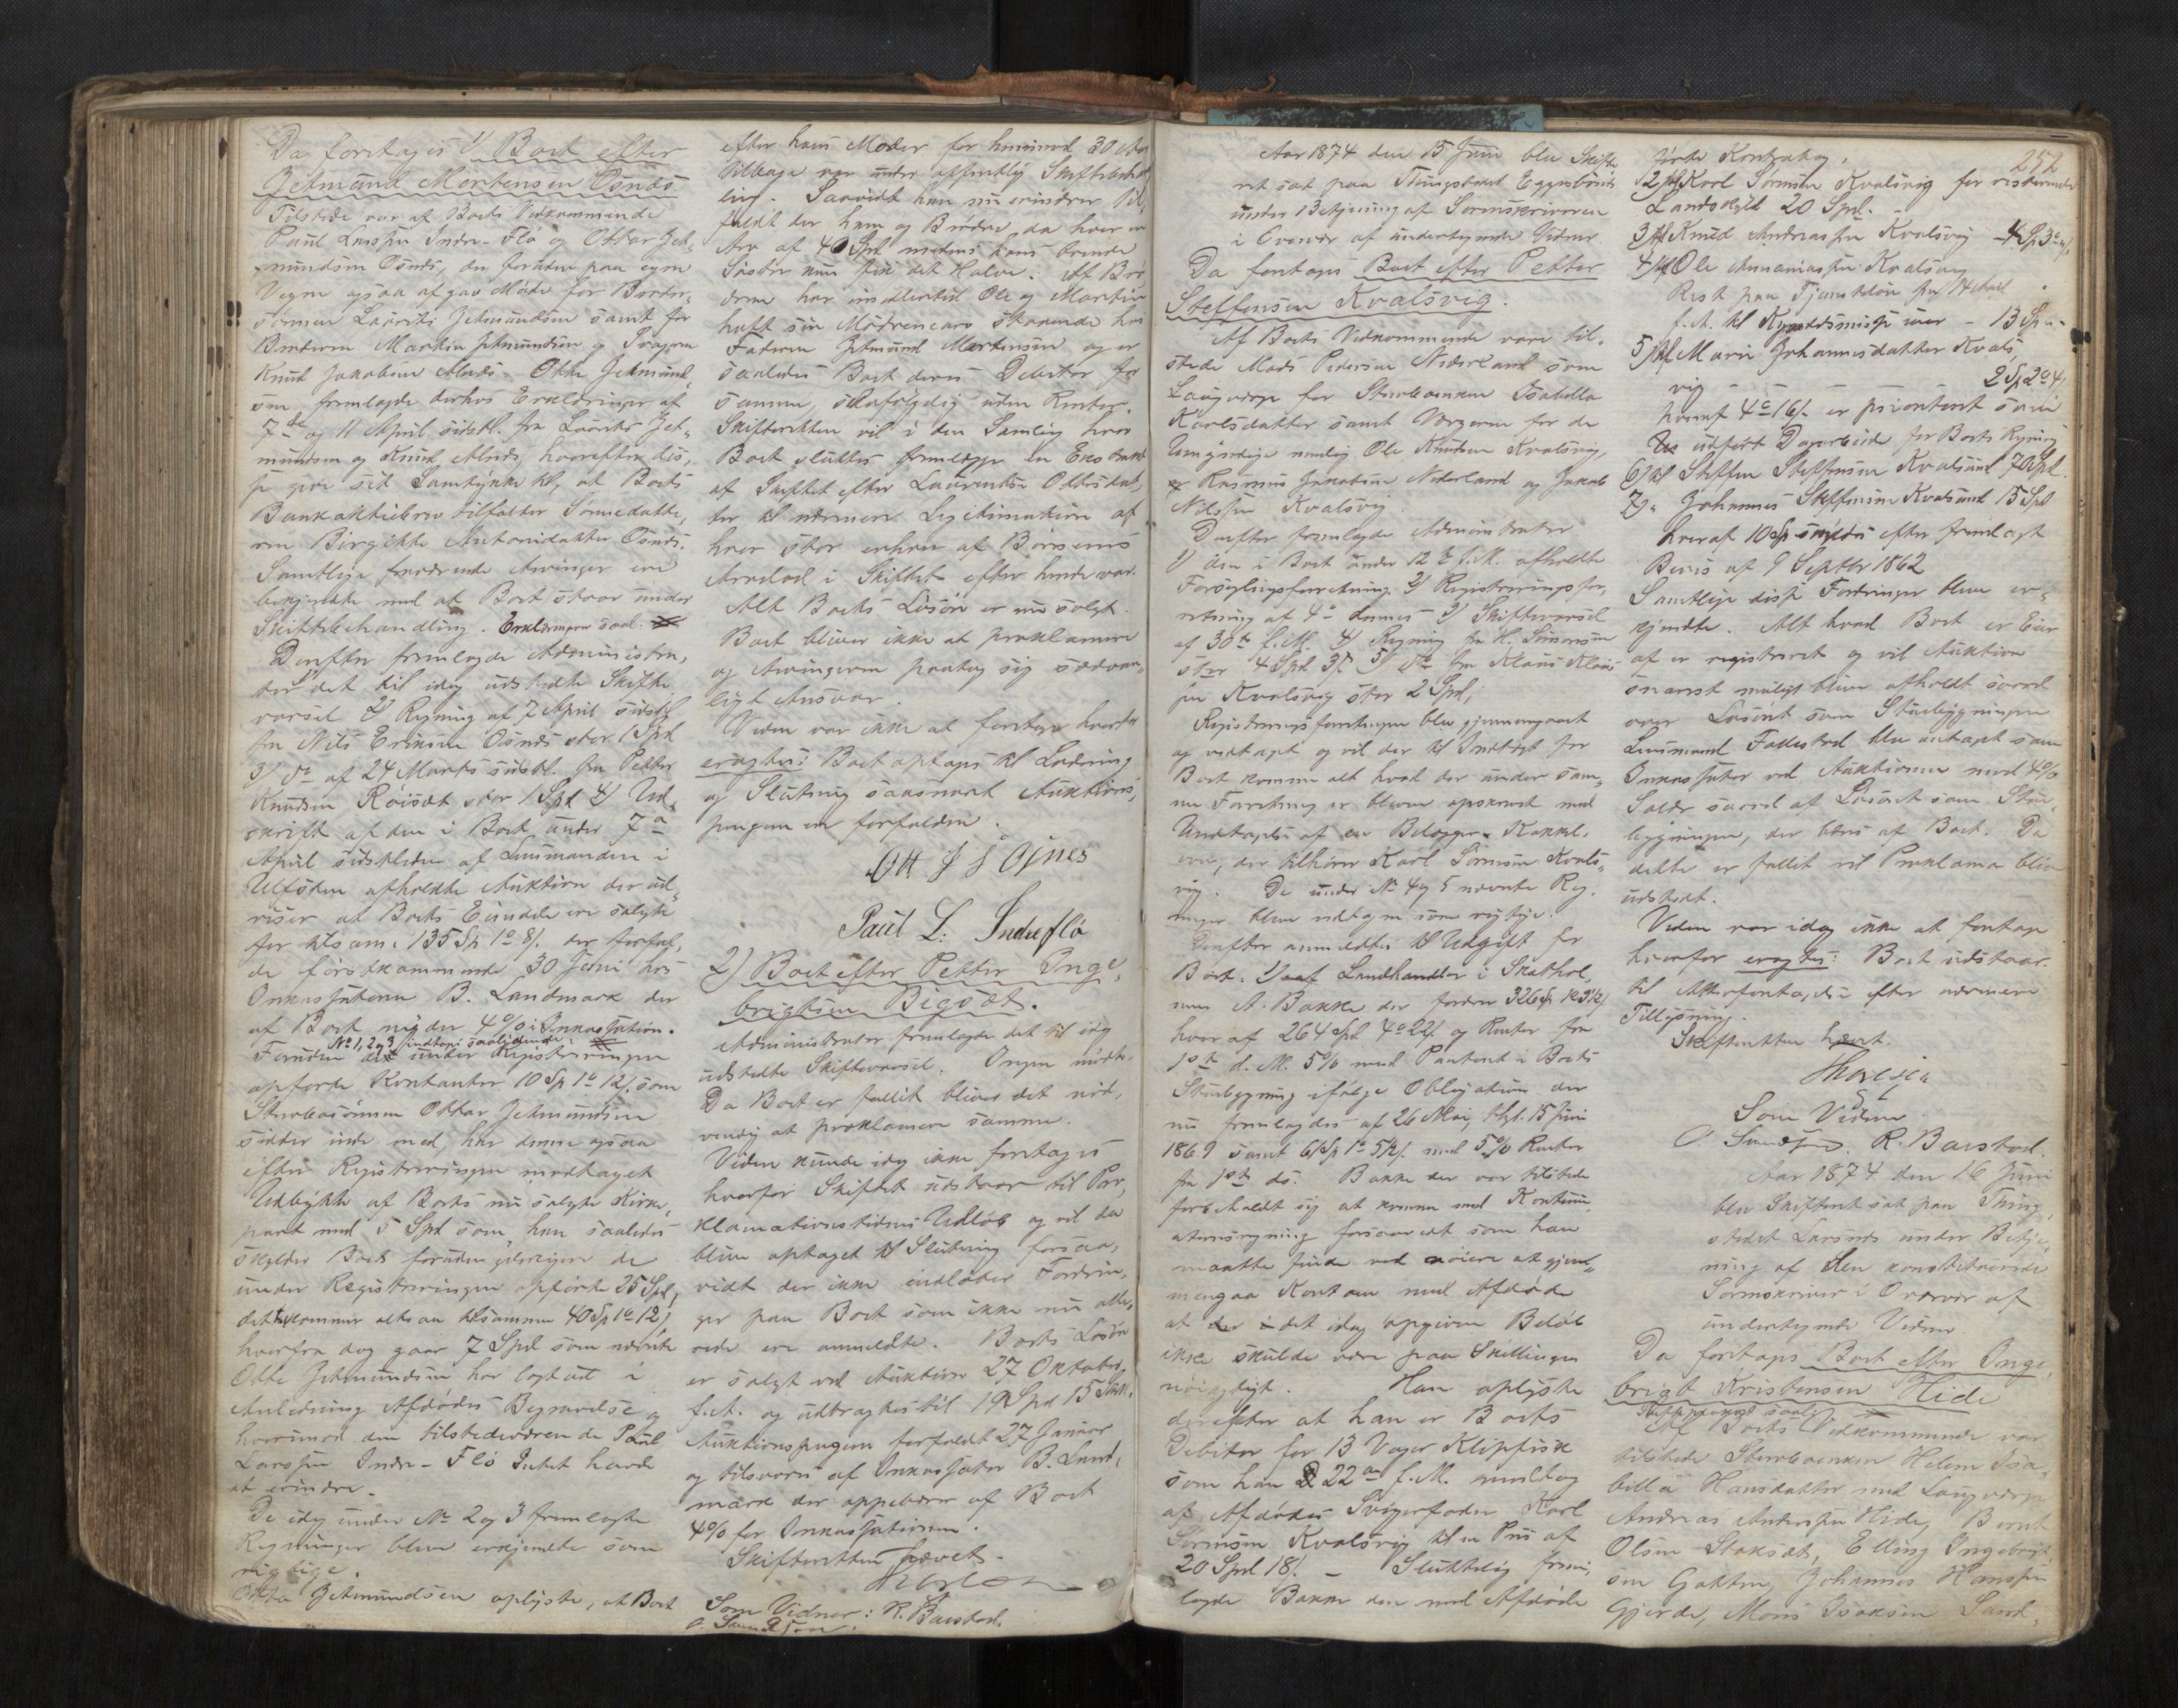 Da foretoges 1) Boet efter
Jetmund Mortensen Osnes
Tilstede var af Boets Vedkommende
Paul Larssen Indre-Flø og Otter Jet-
mundsen Osnes, der foruden paa egne
Vegne ogsaa afgav Møde for Broder-
sønnen Laurits Jetmundsen samt for
Broderen Martin Jetmundsen og Svogren
Knud Jakobsen Mads. Otte Jetmund-
sen fremlagde derhos Erklæringer af
7de og 11 April sidstl. fra Laurits Jet-
mundsen og Knud, hvorefter dis-
se give sit Samtykke til, at Boets
Bankaktiebrev tilfalder Sønnedatte-
ren Birgitte Antonidatter Osnes.
Samtlige fraværende Arvinger ere
bekjendte med at Boet staar under
Skiftebehandling. Erklæringerne saal.
Derefter fremlagde Administra-
tor det til idag udstedte Skifte
varsel 2) Regning af 7 April sidstl.
fra Nils Eriksen Osnes stor 1 Spd
3) do af 24 Marts sidstl. fra Petter
Knudsen Röisæt stor 1 Spd 4) Ud-
skrift af den i Boet under 7de
April sidstleden af Lensmanden i
Ulfsten afholdte Auktion der ud-
viser at Boets Eiendele ere solgte
for tilsam. 135 Sp 1o 8/. der forfal-
de förstkommende 30 Juni hos
Inkassatoren B. Landmark der
af Boet nyder 4% i Inkassation.
No 1, 2 og 3 indtages saalydende
Foruden de under Registreringen
opførte Kontanter 10 Sp 1o 12/. som
Stervbosønnen Ottar Jetmundsen
sidder inde med, har denne ogsaa
efter Registreringen modtaget
Udbytte af Boets nu solgte Kirke-
part med 5 Spd som han saaledes
skylder Boet foruden ydeligere de
under Registreringen opførte 25 Spd,
det kommer altsaa tilsammen 40 Sp 1o 12/
hvorfra dog gaar 7 Spd som nævnte
Otte Jetmundsen har lagt ud i
Anledning Afdødes Begravelse og
hvorimod den tilstedeværende Paul
Larssen Indre-Flö Intet havde
at erindre.
De idag under No 2 og 3 fremlagte
Regninger bleve erkjendte som
rigtige.
Otta Jetmundsen oplyste, at Boet
efter hans Moder for henimod 30 Aar
tilbage var under offentlig Skiftebehand
ling. Saavidt han nu erindrer til-
faldt der ham og Brödre, da hver en
Arv af 40 Spd medens hans eneste
Søster kun fik det Halve. Af Brö
drene har imidlertid Ole og Martin
havt sin Mødrenearv staaende hos
Faderen Jetmund Mortensen og er
saaledes Boet deres Debitor for
samme, selvfølgelig uden Renter.
Skifteretten vil i den Samling hvor
Boet sluttes fremlægge en Extrakt
af Skiftet efter Laurentse Ottesdat-
ter til nærmere Legitimation af
hvor stor enhver af Børnenes
Arvelod i Skiftet efter hende var.
Alt Boets Løsøre er nu solgt.
Boet bliver ikke at proklamere
og Arvingerne paatog sig sædvan-
ligt Ansvar.
Videre var ikke at foretage hvorfor
eragtes: Boet optages til Lodning
og Slutning saasnart Auktions-
pengene ere forfaldne.
Ott J S Osnes
Paul L. Indreflö
2) Boet efter Petter Inge-
brigtsen Bigsæt.
Administrator fremlagde det til idag
udstedte Skiftevarsel. Ingen mødte.
Da Boet er fallit bliver det nød-
vendig at proklamere samme.
Videre kunde idag ikke foretages
hvorfor Skiftet udstaar til Pro-
klamationstidens Udløb og vil da
blive optaget til Slutning forsaa-
vidt der ikke indløber Fordrin-
ger paa Boet som ikke nu alle-
rede ere anmeldte. Boets Løsøre
er solgt ved Auktion 27 Oktober
f.A. og udbragtes til 19 Spd 15 Skill.
Auktionspengene forfaldt 27 Januar
og tilsvares af Inkassator B. Land-
mark der oppebærer af Boet
4% for Inkassationen.
Skifteretten hævet.
Som Vidner: R. Baustad.
Aar 1874 den 15 Juni blev Skifte
ret sat paa Thingstedet Eggesbönæs
under Betjening af Sorenskriveren
i Overvær af undertegnede Vidner.
Da foretages Boet efter Petter
Steffensen Kvalsvig.
Af Boets Vedkommende vare til-
stede Mads Pedersen Nederland som
Laugværge for Stervboenken Isabella
Karlsdatter samt Værgerne for de
Umyndige nemlig Ole Knudsen Kvalsvig,
Rasmus Jakobsen Nederland og Jakob
Nilssen Kvalsvig.
Derefter fremlagde Administrator
1) den i Boet under 12te f.M. afholdte
Forseglingsforretning, 2) Registreringsfor-
retning af 4de dennes 3) Skiftevarsel
af 30te f.M. 4) Regning fra H. Simonsen
stor 4 Spd 3/. 5) do fra Klaus Klaus-
sen Kvalsvig stor 2 Spd,
Registreringsforretningen blev gjennemgaaet
og vedtaget og vil der til Indtægt for
Boet komme alt hvad der under sam-
me Forretning er bleven opskrevet med
Undtagelse af en Belægger-Kakkel-
ovn, der tilhører Karl Sörensen Kvals-
vig. De under No 4 og 5 nævnte Reg-
ninger bleve vedtagne som rigtige.
Derefter anmeldtes til Udgift for
Boet. 1) af Landhandler i Skathol-
men A. Bakke der fordrer 326 Sp
hvoraf 264 Spd 4o 22/. og Renter fra
1ste d.M. 5% med Panteret i Boets
Stuebygning ifølge Obligation der
nu fremlagdes af 26 Mai, thgl. 15 Juni
1869 samt 61 Sp 1o 5½/. med 5% Renter
fra 1ste ds. Bakke der var tilstede
forbeholdt sig at komme med Kontinu-
ationsregning forsaavidt som han
maatte finde ved nøiere at gjen-
nemgaa Kontoen med Afdøde
at det idag opgivne Beløb
ikke skulde være paa Skillingen
nøiagtigt. Han oplyste
derefter at han er Boets
Debitor for 13 Voger Klipfisk
som han 22de f.M. modtog
af Afdødes Svigerfader Karl
Sörensen Kvalsvig til en Pris af
20 Spd 18/. – Sluttelig frem-
lagde Bakke den med Afdøde
252
førte Kontrabog.
2) Karl Sörensen Kvalsvig for resterende
Landskyld 20 Spd.
3) Knud Andreassen Kvalsvig
4) Ole Ananiassen Kvalsvig
Rest paa Tjenestelön fra 14 April
f.A. til Kyndelsmisse iaar – 13 Sp
5) Marie Johannesdatter Kvals
vig – – – 2 Sp 2o 4/
hvoraf 4o 16/. er prioriteret som
udført Dagarbeide for Boets Regning
6) Steffen Steffensen Kvalsund 70 Spd
7) Johannes Steffensen Kvalsund 15 Spd
hvoraf 10 Sp skyldes efter fremlagt
Bevis af 9 Septbr 1862
Samtlige disse Fordringer bleve er-
kjendte. Alt hvad Boet er Eier
af er registreret og vil Auktion
snarest muligt blive afholdt saavel
over Løsøret som Stuebygningen
Lensmand Folkestad blev antaget som
Inkassator ved Auktionen mod 4%
Salær saavel af Løsøret som Stue-
bygningen, der bæres af Boet. Da
dette er fallit vil Proklama blive
udstedt.
Videre var idag ikke at foretage
hvorfor eragtes: Boet udstaar
til Atterforetagelse efter nærmere
Tillysning.
Skifteretten hævet.
Som Vidner
R. Baustad.
Aar 1874 den 16 Juni
blev Skifteret sat paa Thing
stedet Larsnes under Betje-
ning af den konstituerede
Sorenskriver i Overvær af
undertegnede Vidner
Da foretages Boet efter Inge-
brigt Kristensen Hide
Af Boets Vedkommende var
tilstede Stervboenken Helene Isa-
bella Hansdatter med Laugværge
Andreas Anderssen Hide, Bernt
Olsen Stoksæt, Elling Ingebrigt-
sen Gakken, Johannes Hanssen
Gjerde, Mons Isaksen Sand-